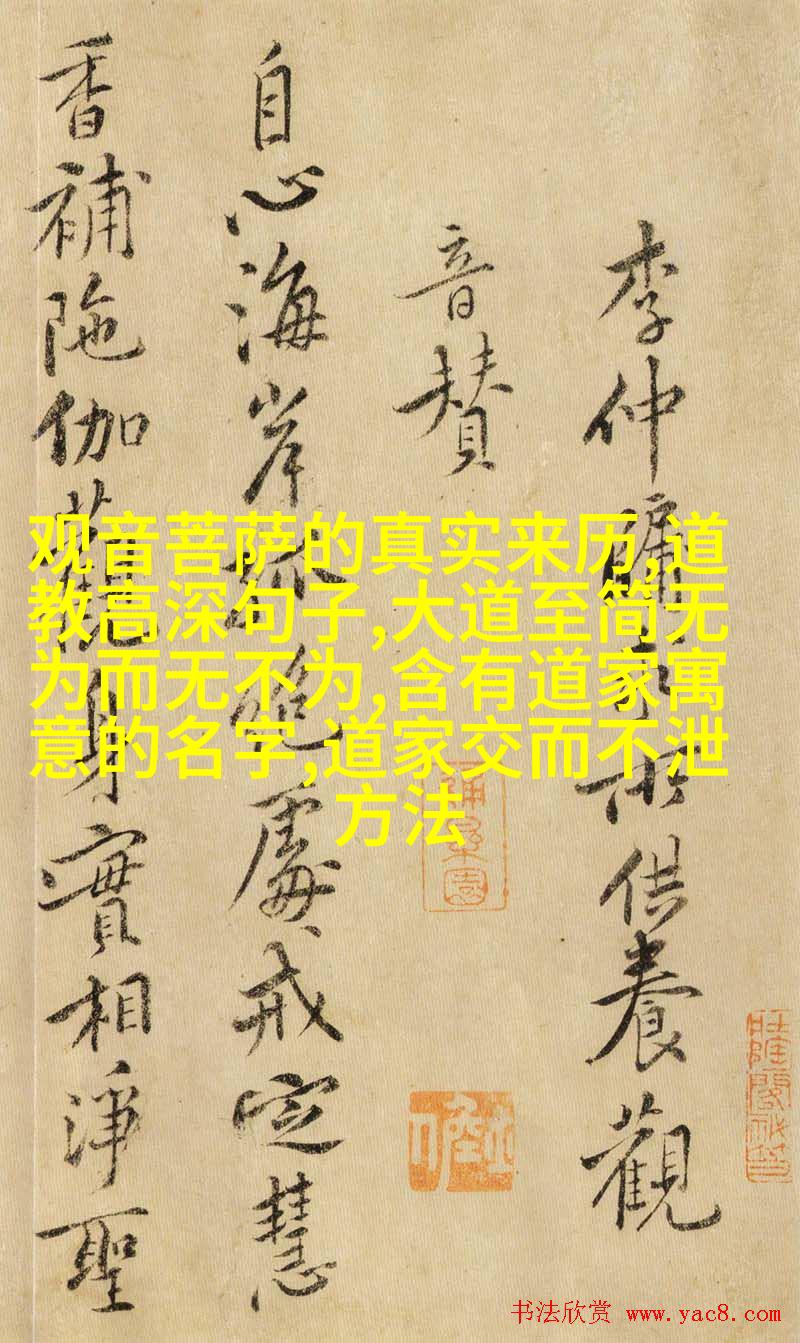 李仲牖所供養觀
音贊
自心海岸孤絕處戒定慧
香補陁伽觀身實相淨聖
观音菩萨的真实来历,道
教高深句子,大道至简无
为而无不为,含有道家寓
意的名字,道家交而不泄
方法
书法欣赏 www.yac8.com